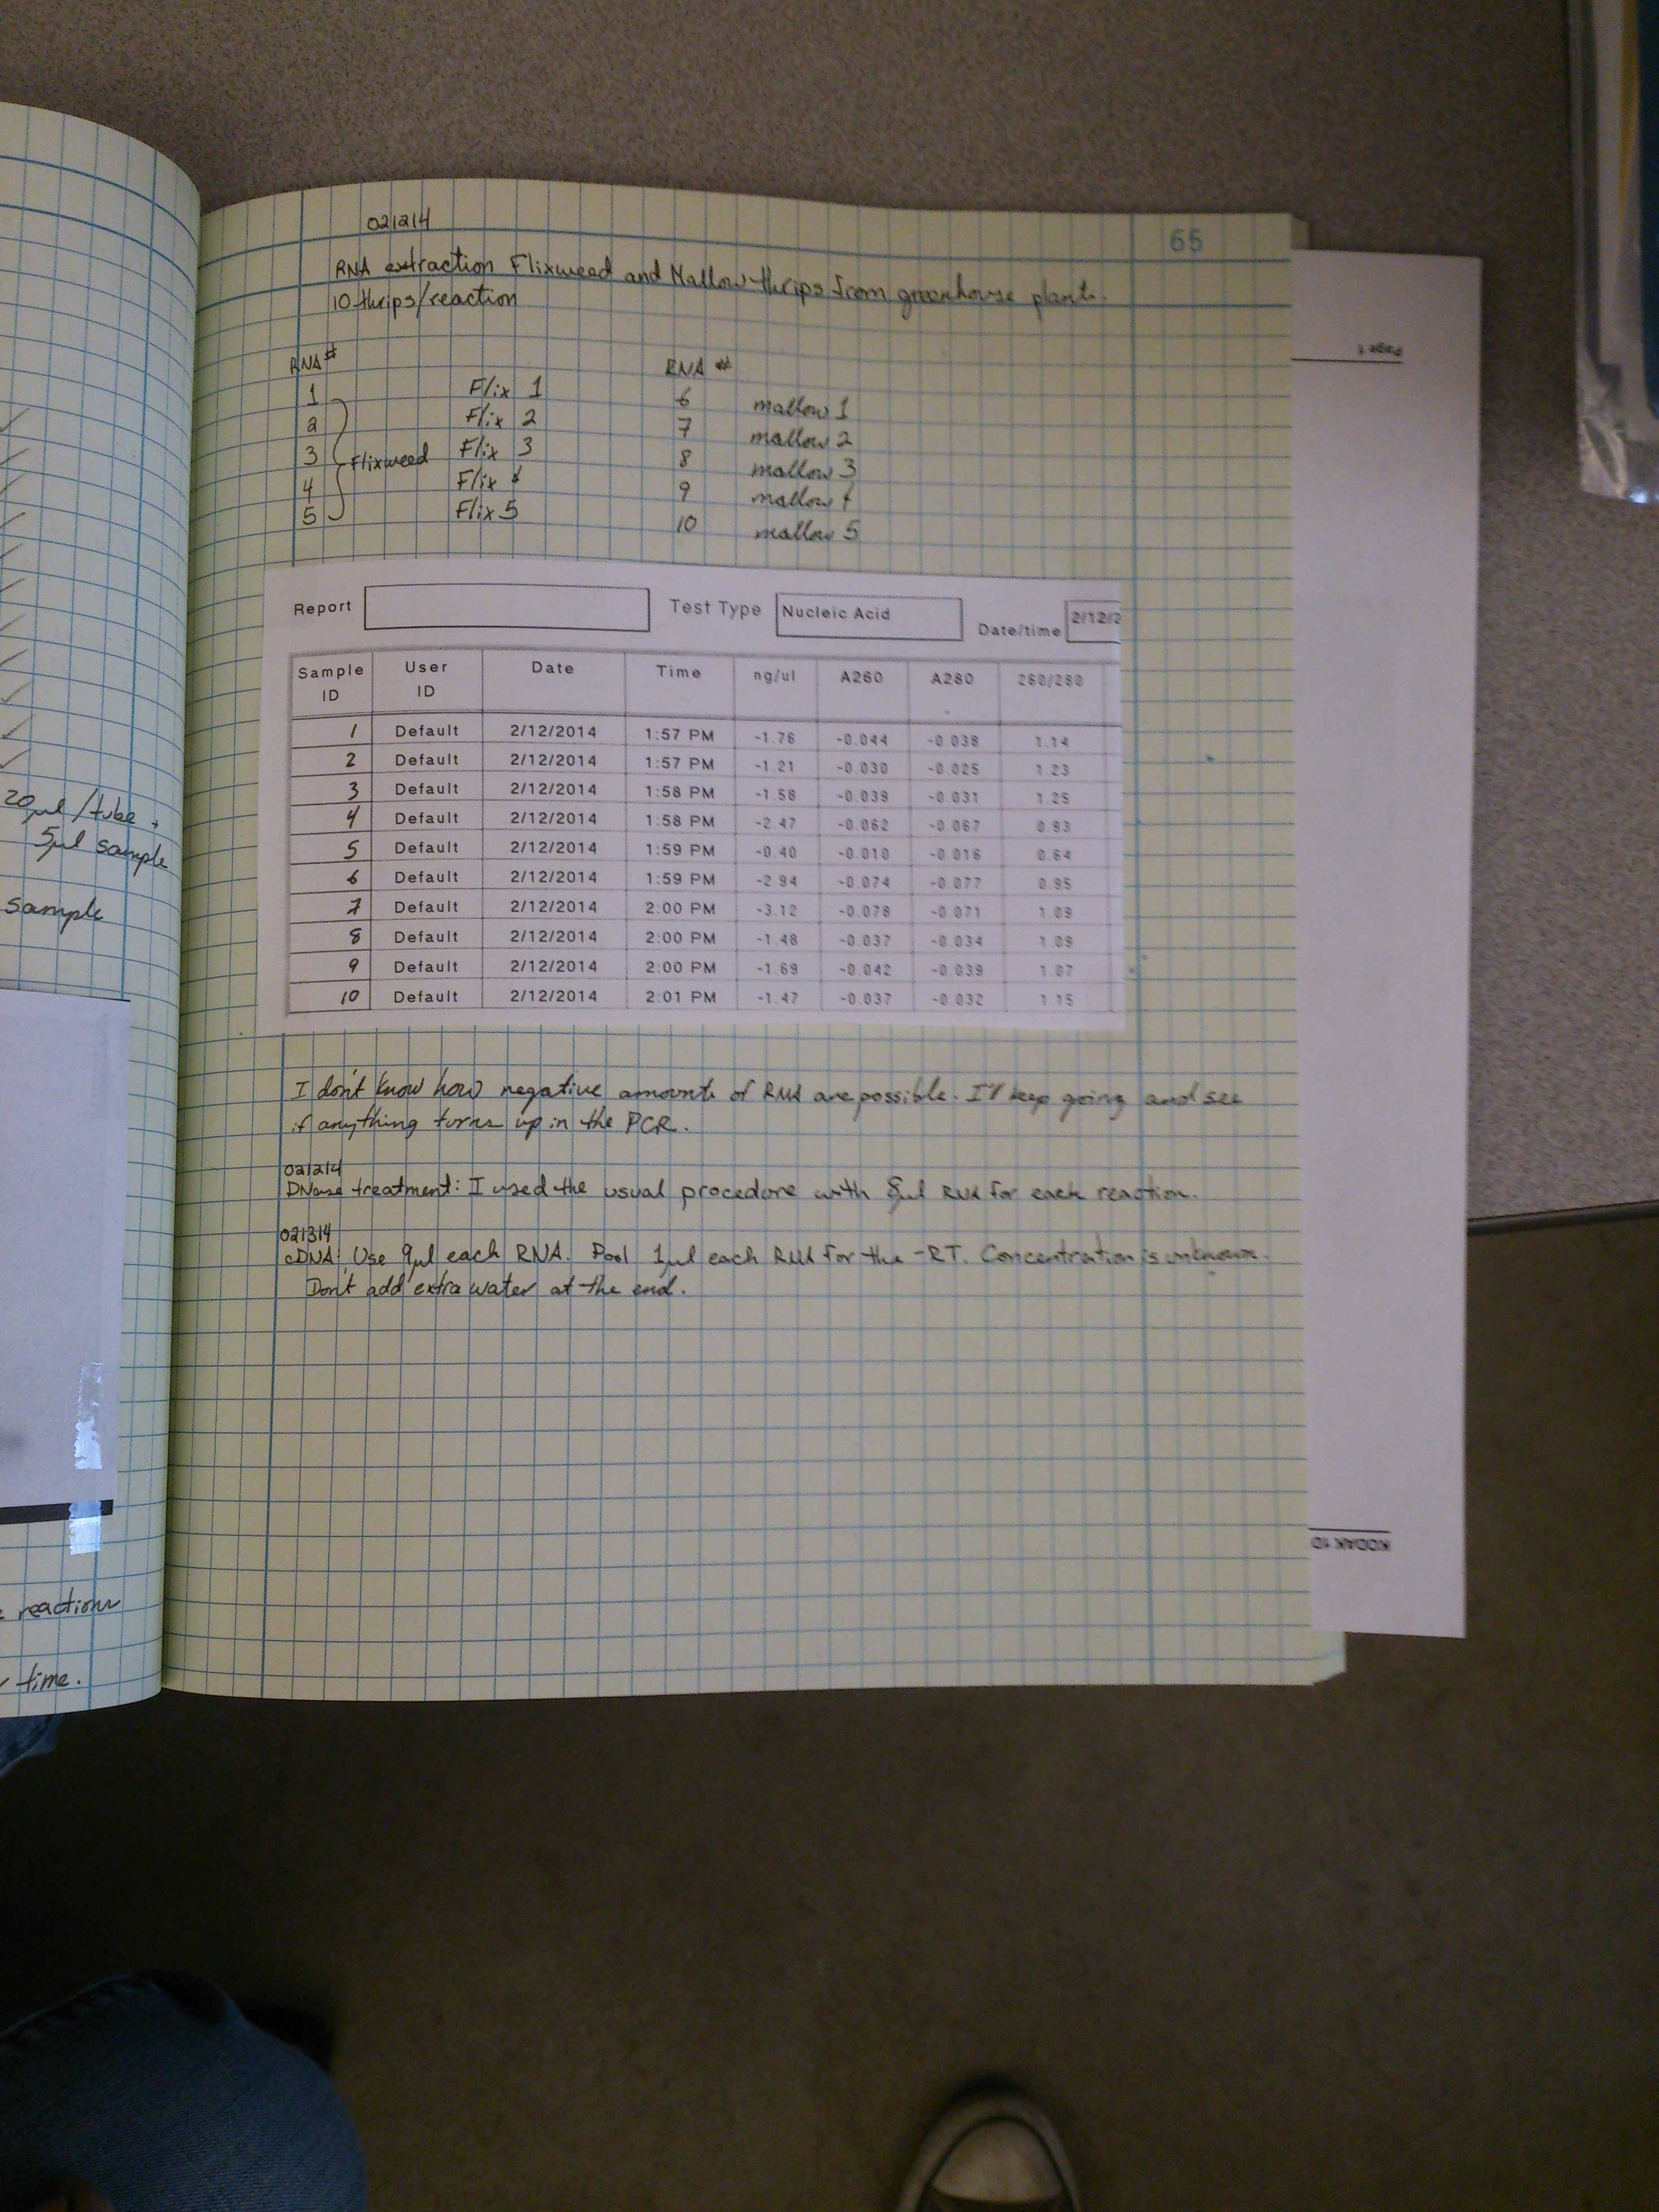 65
021214
RNA extraction Flixweed and Mallow thrips from greenhouse plants.
10 thrips/reaction
RNA # RNA #
1 Flix 1 6 mallow 1
2 Flix 2 7 mallow 2
3 Flixweed Flix 3 8 mallow 3
4 Flix 4 9 mallow 4
5 Flix 5 10 mallow 5
Report Test Type Nucleic Acid Date/time 2/12/2
Sample ID User ID Date Time ng/ul A260 A280 260/280
1 Default 2/12/2014 1:57 PM -1.76 -0.044 -0.038 1.14
2 Default 2/12/2014 1:57 PM -1.21 -0.030 -0.025 1.23
3 Default 2/12/2014 1:58 PM -1.58 -0.039 -0.031 1.25
4 Default 2/12/2014 1:58 PM -2.47 -0.062 -0.067 0.93
5 Default 2/12/2014 1:59 PM -0.40 -0.010 -0.016 0.64
6 Default 2/12/2014 1:59 PM -2.94 -0.074 -0.077 0.95
7 Default 2/12/2014 2:00 PM -3.12 -0.078 -0.071 1.09
8 Default 2/12/2014 2:00 PM -1.48 -0.037 -0.034 1.09
9 Default 2/12/2014 2:00 PM -1.69 -0.042 -0.039 1.07
10 Default 2/12/2014 2:01 PM -1.47 -0.037 -0.032 1.15
I don't know how negative amounts of RNA are possible. I'll keep going and see
if anything turns up in the PCR.
021214
DNase treatment: I used the usual procedure with 8µl RNA for each reaction.
021314
cDNA: Use 9µl each RNA. Pool 1µl each RNA for the -RT. Concentration is unknown.
Don't add extra water at the end.
20µl/tube +
5µl sample
sample
reactions
time.
Page 1
KODAK 1D